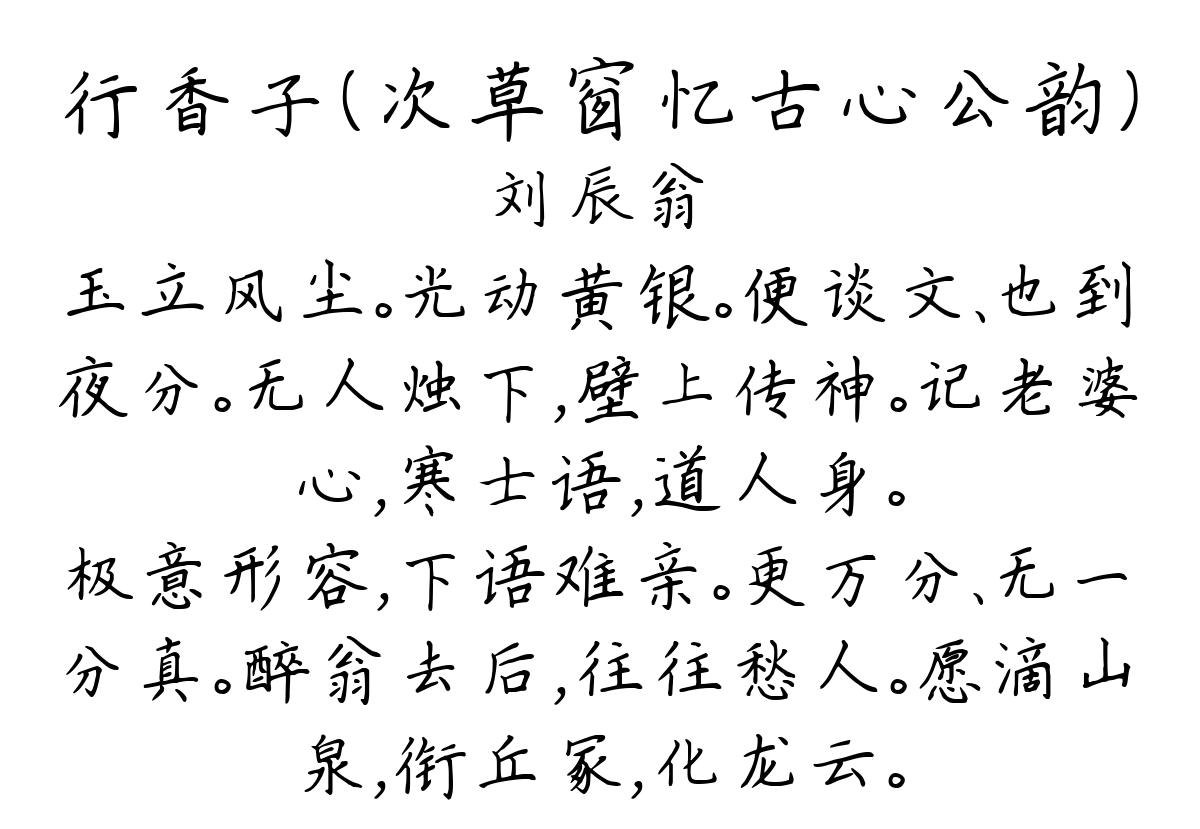 行香子(次草窗忆古心公韵)
刘辰翁
玉立风尘。光动黄银。便谈文、也到
夜分。无人烛下,壁上传神。记老婆
心,寒士语,道人身。
极意形容,下语难亲。更万分、无一
分真。醉翁去后,往往愁人。愿滴山
泉,衔丘冢,化龙云。